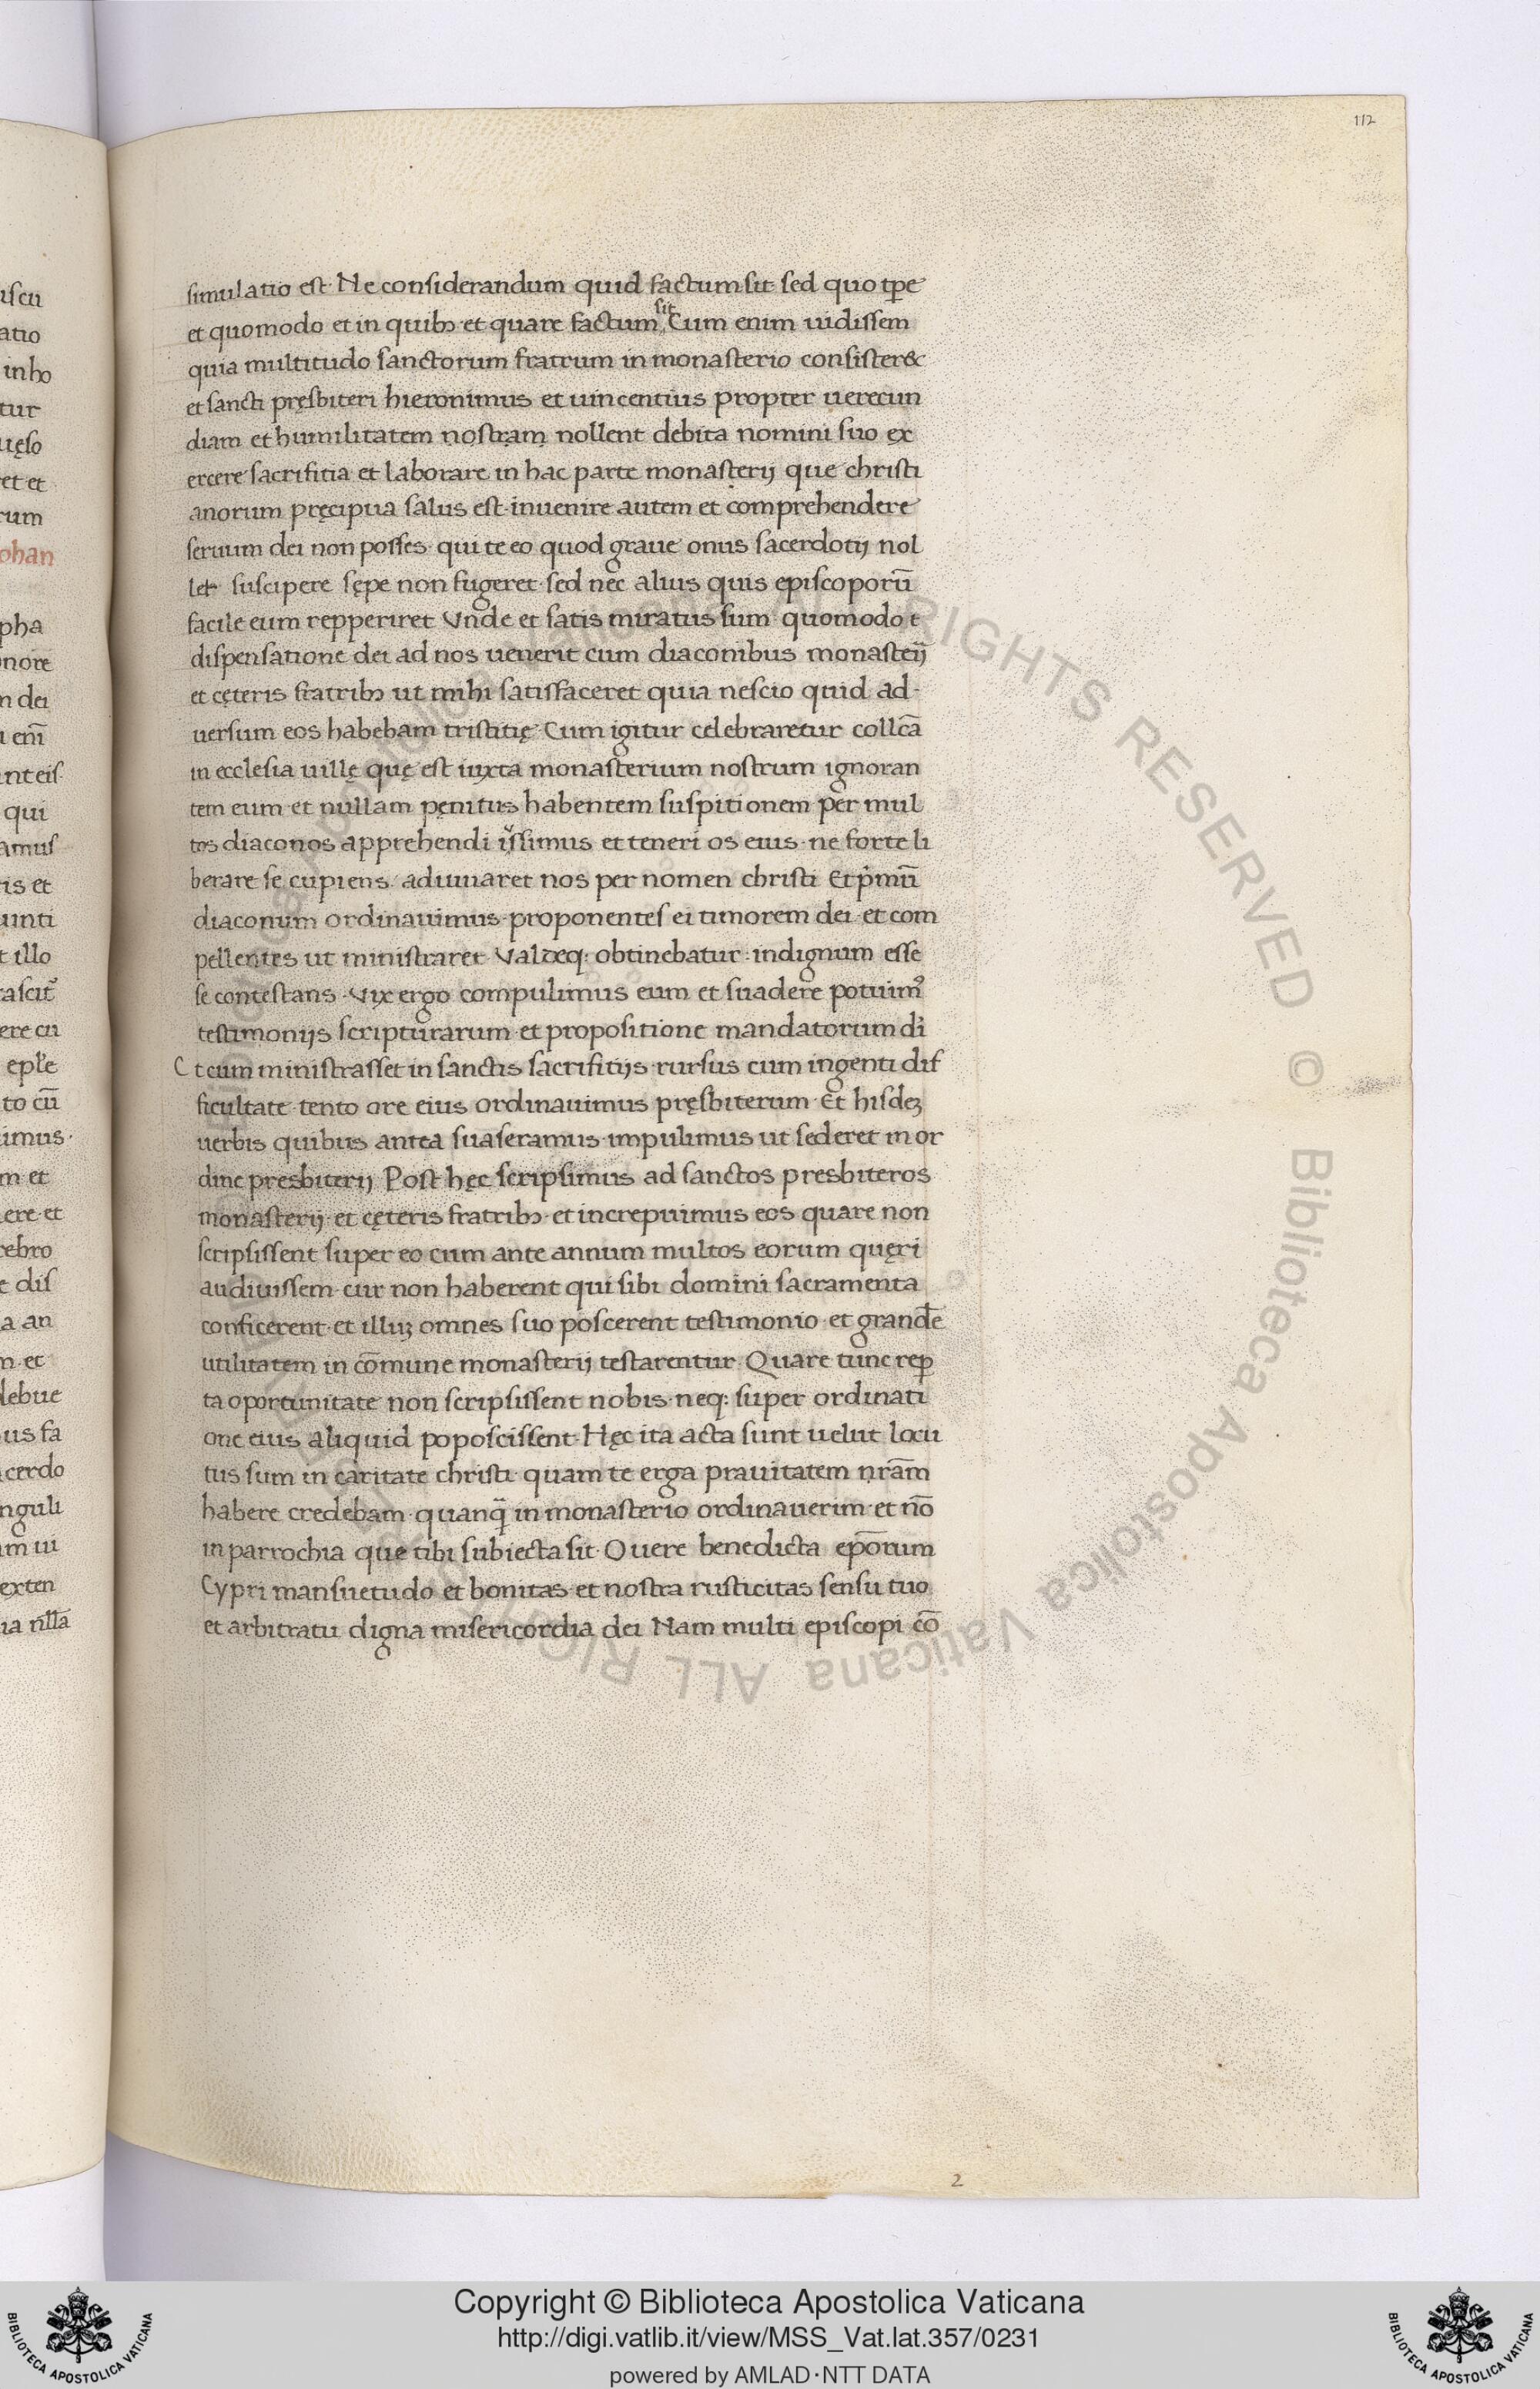 112
simulatio est. Ne considerandum quid factum sit sed quo tp̅e
et quomodo et in quibꝫ et quare factum sit Cum enim uidissem
quia multitudo sanctorum fratrum in monasterio consister&
et sancti pręsbiteri hieronimus et uincentius propter uerecun
diam et humilitatem nostram nollent debita nomini suo ex
ercere sacrifitia et laborare in hac parte monasterij que christi
anorum pręcipua salus est. inuenire autem et comprehendere
seruum dei non posses. qui te eo quod graue onus sacerdotij nol
let suscipere sępe non fugeret. sed nec̅ alius quis episcoporu̅
facile eum repperiret Vnde et satis miratus sum quomodo t
dispensatione dei ad nos uenerit cum diaconibus monasteij̅
et cęteris fratribꝫ ut mihi satisfaceret quia nescio quid ad
uersum eos habebam tristitię Cum igitur celebraretur collca̅
in ecclesia uillę quę est iuxta monasterium nostrum ignoran
tem eum et nullam pęnitus habentem suspitionem per mul
tos diaconos apprehendi iussimus et teneri os eius. ne forte li
berare se cupiens. adiuuaret nos per nomen christi Et pͥmu̅
diaconum ordinauimus. proponentes ei timorem dei et com
pellentes ut ministraret Valdeq: obtinebatur. indignum esse
se contestans. Vix ergo compulimus eum et suadere potuimꝰ
testimonijs scripturarum et propositione mandatorum di̅
C t cum ministrasset in sanctis sacrifitijs. rursus cum ingenti dif
ficultate tento ore eius ordinauimus pręsbiterum. Et hisdeꝫ
uerbis quibus antea suaseramus impulimus ut sederet in or
dine presbiterij Post hęc scripsimus ad sanctos presbiteros
monasterij et cęteris fratribꝫ et increpuimus eos quare non
scripsissent super eo cum ante annum multos eorum quęri
audiuissem cur non haberent qui sibi domini sacramenta
conficerent. et illuꝫ omnes suo poscerent testimonio et grande̅
utilitatem in co̅mune monasterij testarentur. Quare tunc rep̲
ta oportunitate non scripsissent nobis. neq: super ordinati
one eius aliquid poposcissent. Hęc ita acta sunt uelut locu
tus sum in caritate christi quam te erga prauitatem nr̅am
habere credebam. quanq̅ in monasterio ordinauerim et no̅
in parrochia que tibi subiecta sit. O uere benedicta ep̅orum
Cypri mansuetudo et bonitas et nostra rusticitas sensu tuo
et arbitratu digna misericordia dei Nam multi episcopi co̅
2
Copyright © Biblioteca Apostolica Vaticana
http://digi.vatlib.it/view/MSS_Vat.lat.357/0231
powered by AMLAD·NTT DATA